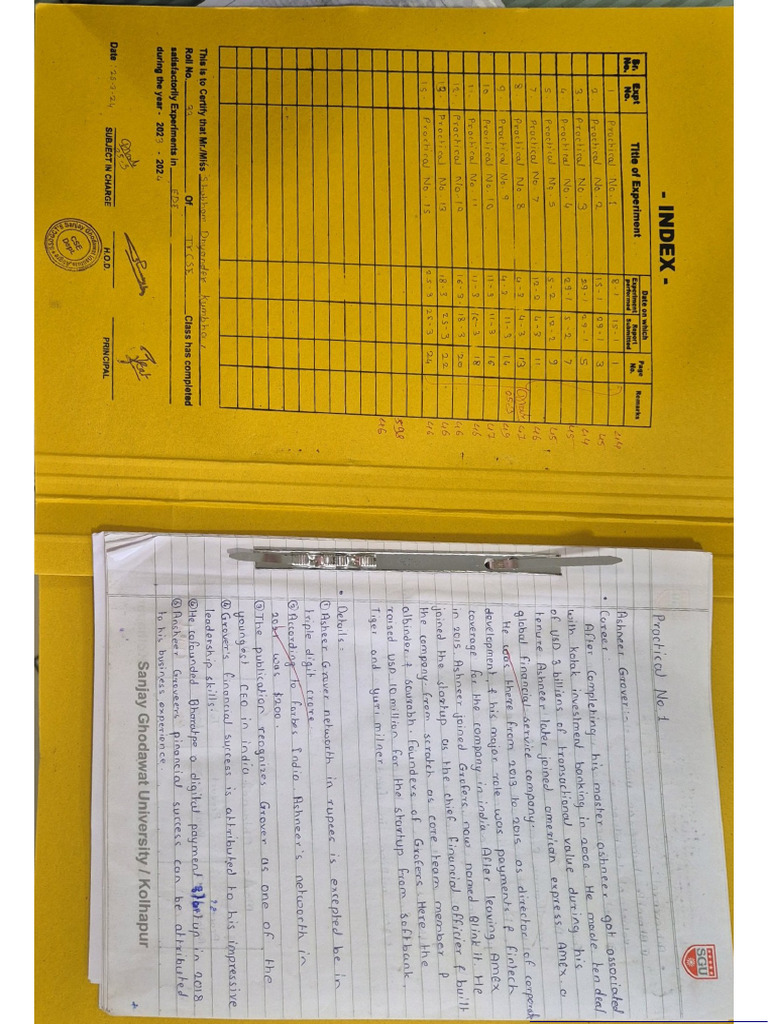 - INDEX -
Sr. No. Expt No. Title of Experiment Date on which Experiment performed Report Submitted Page No. Remarks
1 Practical No. 1 8-1 15-1 1 44
2 Practical No. 2 15-1 29-1 3 45
3. Practical No. 3 29-1 29-1 5 44
4. Practical No. 4 29-1 5-2 7 45
5 Practical No. 5 5-2 12-2 9 45
7 Practical No. 7 12-2 4-3 11 46
8 Practical No. 8 4-3 13 47
9 Practical No. 9 4-3 11-3 14 49
10 Practical No. 10 11-3 11-3 16 47
11. Practical No. 11 11-3 16-3 18 46
12. Practical No. 18-3 20 46
13. Practical No. 13 18-3 25-3 22 46
15. Practical No. 15 25-3 25-3 24 46
598
46
This is to Certify that Mr/Miss Shubham Dnyandev Kumbhar,
Roll No. Of TYCSE Class has completed
satisfactorily Experiments in EDI
during the year - 2023 - 2024
Date : 25-3-24 SUBJECT IN CHARGE H.O.D. PRINCIPAL
CSE Dept.
SGU
Practical No. 1
Ashneer Grover:-
• Career.
After completing his master ashneer got associated
with kotak investment banking in 2006 He made ten deal
of USD 3 billions of transactional value during his
tenure Ashneer later joined american express Amex a
global financial service company.
He was there from 2013 to 2015 as director of corporate
development & his major role was payments & fintech
coverage for the company in india. After leaving Amex
in 2015 Ashneer joined Grofers now named Blink it He
joined the startup as the chief financial officier & built
the company from scratch as core team member &
albinder & sourabh. Founders of Grofers Here the
raised USD 10 million for the startup from softbank.
Tiger and yuri milner
• Details:-
① Asheer Grover networth in rupees is excepted be in
triple digit crore
② According to forbes India Ashneer's networth in
2021 was $200.
③ The publication reognizes Grover as one of the
youngest CEO in india
④ Grover's financial success is attributed to his impressive
leadership skills:
⑤ He cofounded Bharatpe a digital payment startup in 2018
⑥ Ansheer Grovers financial success can be attributed
to his business experience.
Sanjay Ghodawat University / Kolhapur